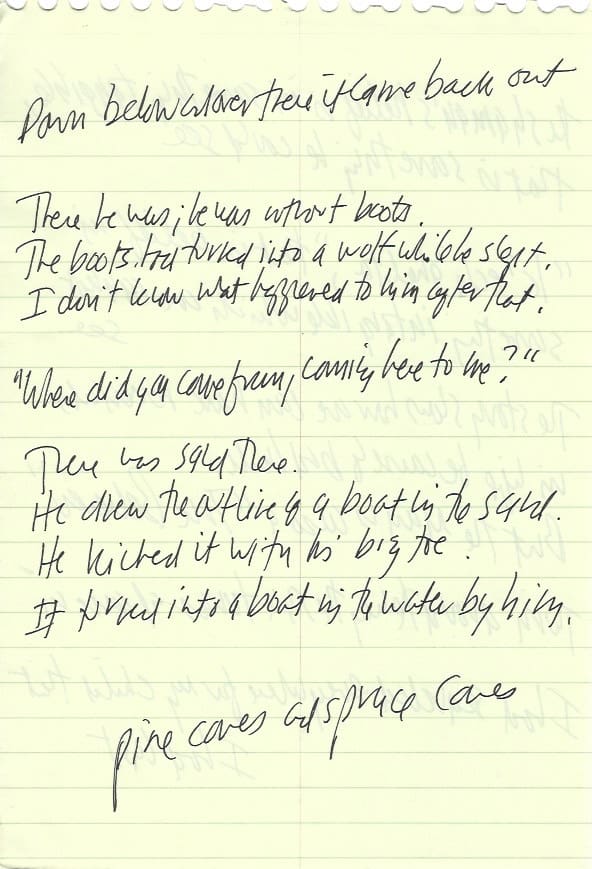 Down below and over there it came back out
There he was; he was without boots.
The boots had turned into a wolf while he slept.
I don't know what happened to him after that.
"Where did you come from, coming here to me?"
There was sand there.
He drew the outline of a boat in the sand.
He kicked it with his big toe.
It turned into a boat in the water by him.
pine cones and spruce cones